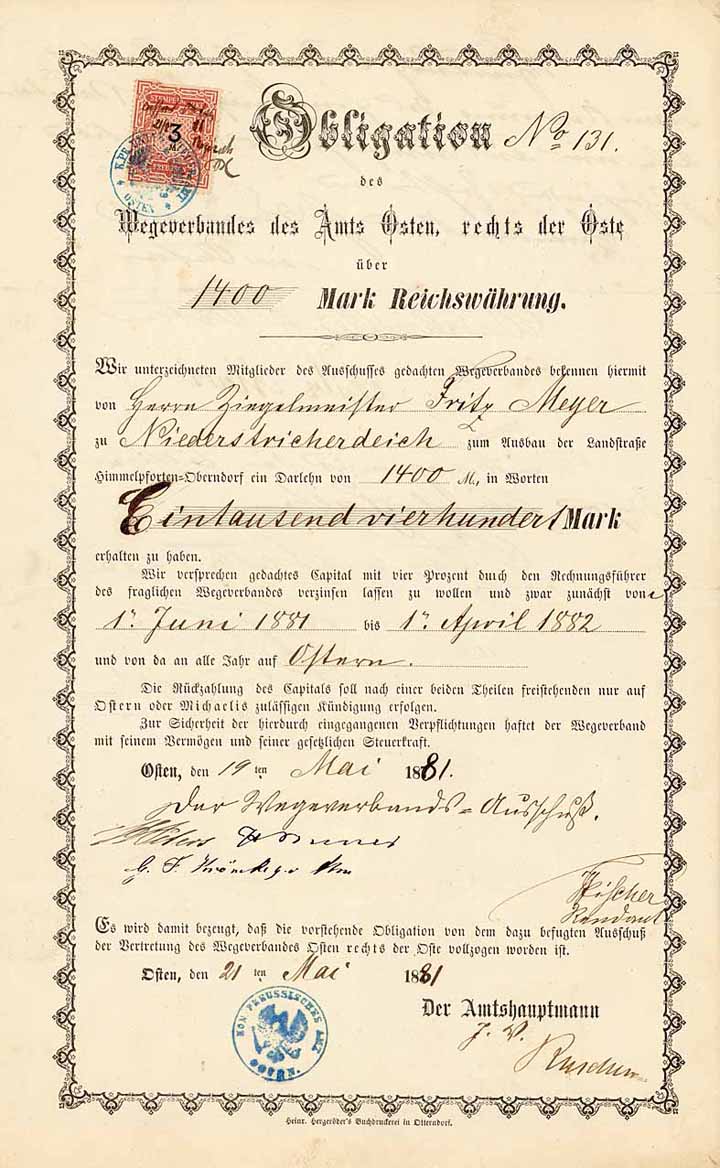 Obligation No 131.
des
Wegeverbandes des Amts Osten, rechts der Oste
über
1400 Mark Reichswährung.
Wir unterzeichneten Mitglieder des Ausschusses gedachten Wegeverbandes bekennen hiermit
von Herrn Ziegelmeister Fritz Meyer
zu Niederstricherdeich zum Ausbau der Landstraße
Himmelpforten-Oberndorf ein Darlehn von 1400 M., in Worten
Eintausend vierhundert Mark
erhalten zu haben.
Wir versprechen gedachtes Capital mit vier Prozent durch den Rechnungsführer
des fraglichen Wegeverbandes verzinsen lassen zu wollen und zwar zunächst von
1. Juni 1881 bis 1. April 1882
und von da an alle Jahr auf Ostern.
Die Rückzahlung des Capitals soll nach einer beiden Theilen freistehenden nur auf
Ostern oder Michaelis zulässigen Kündigung erfolgen.
Zur Sicherheit der hierdurch eingegangenen Verpflichtungen haftet der Wegeverband
mit seinem Vermögen und seiner gesetzlichen Steuerkraft.
Osten, den 19 ten Mai 1881.
Der Wegeverbands-Ausschuß.
Rendant
Es wird damit bezeugt, daß die vorstehende Obligation von dem dazu befugten Ausschuß
der Vertretung des Wegeverbandes Osten rechts der Oste vollzogen worden ist.
Osten, den 21 ten Mai 1881
KÖN. PREUSSISCHES AMT
OSTEN.
Der Amtshauptmann
J. V.
Heinr. Hergeröder's Buchdruckerei in Otterndorf.